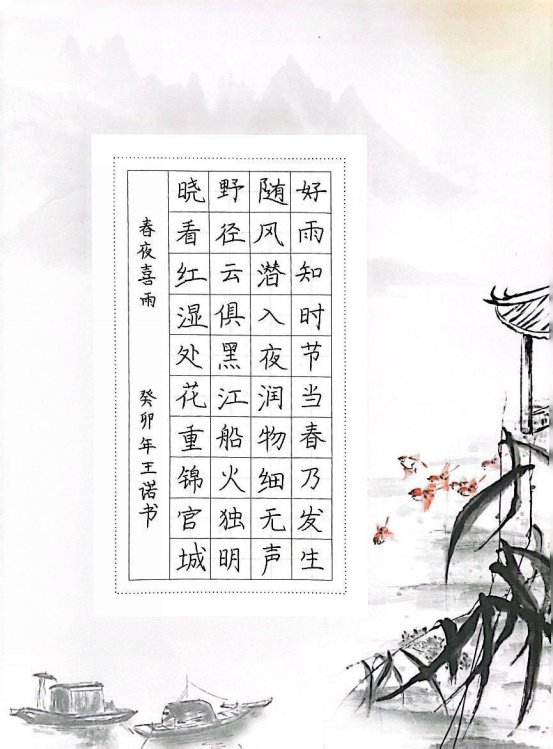 好雨知时节当春乃发生
随风潜入夜润物细无声
野径云俱黑江船火独明
晓看红湿处花重锦官城
春夜喜雨
癸卯年王诺书